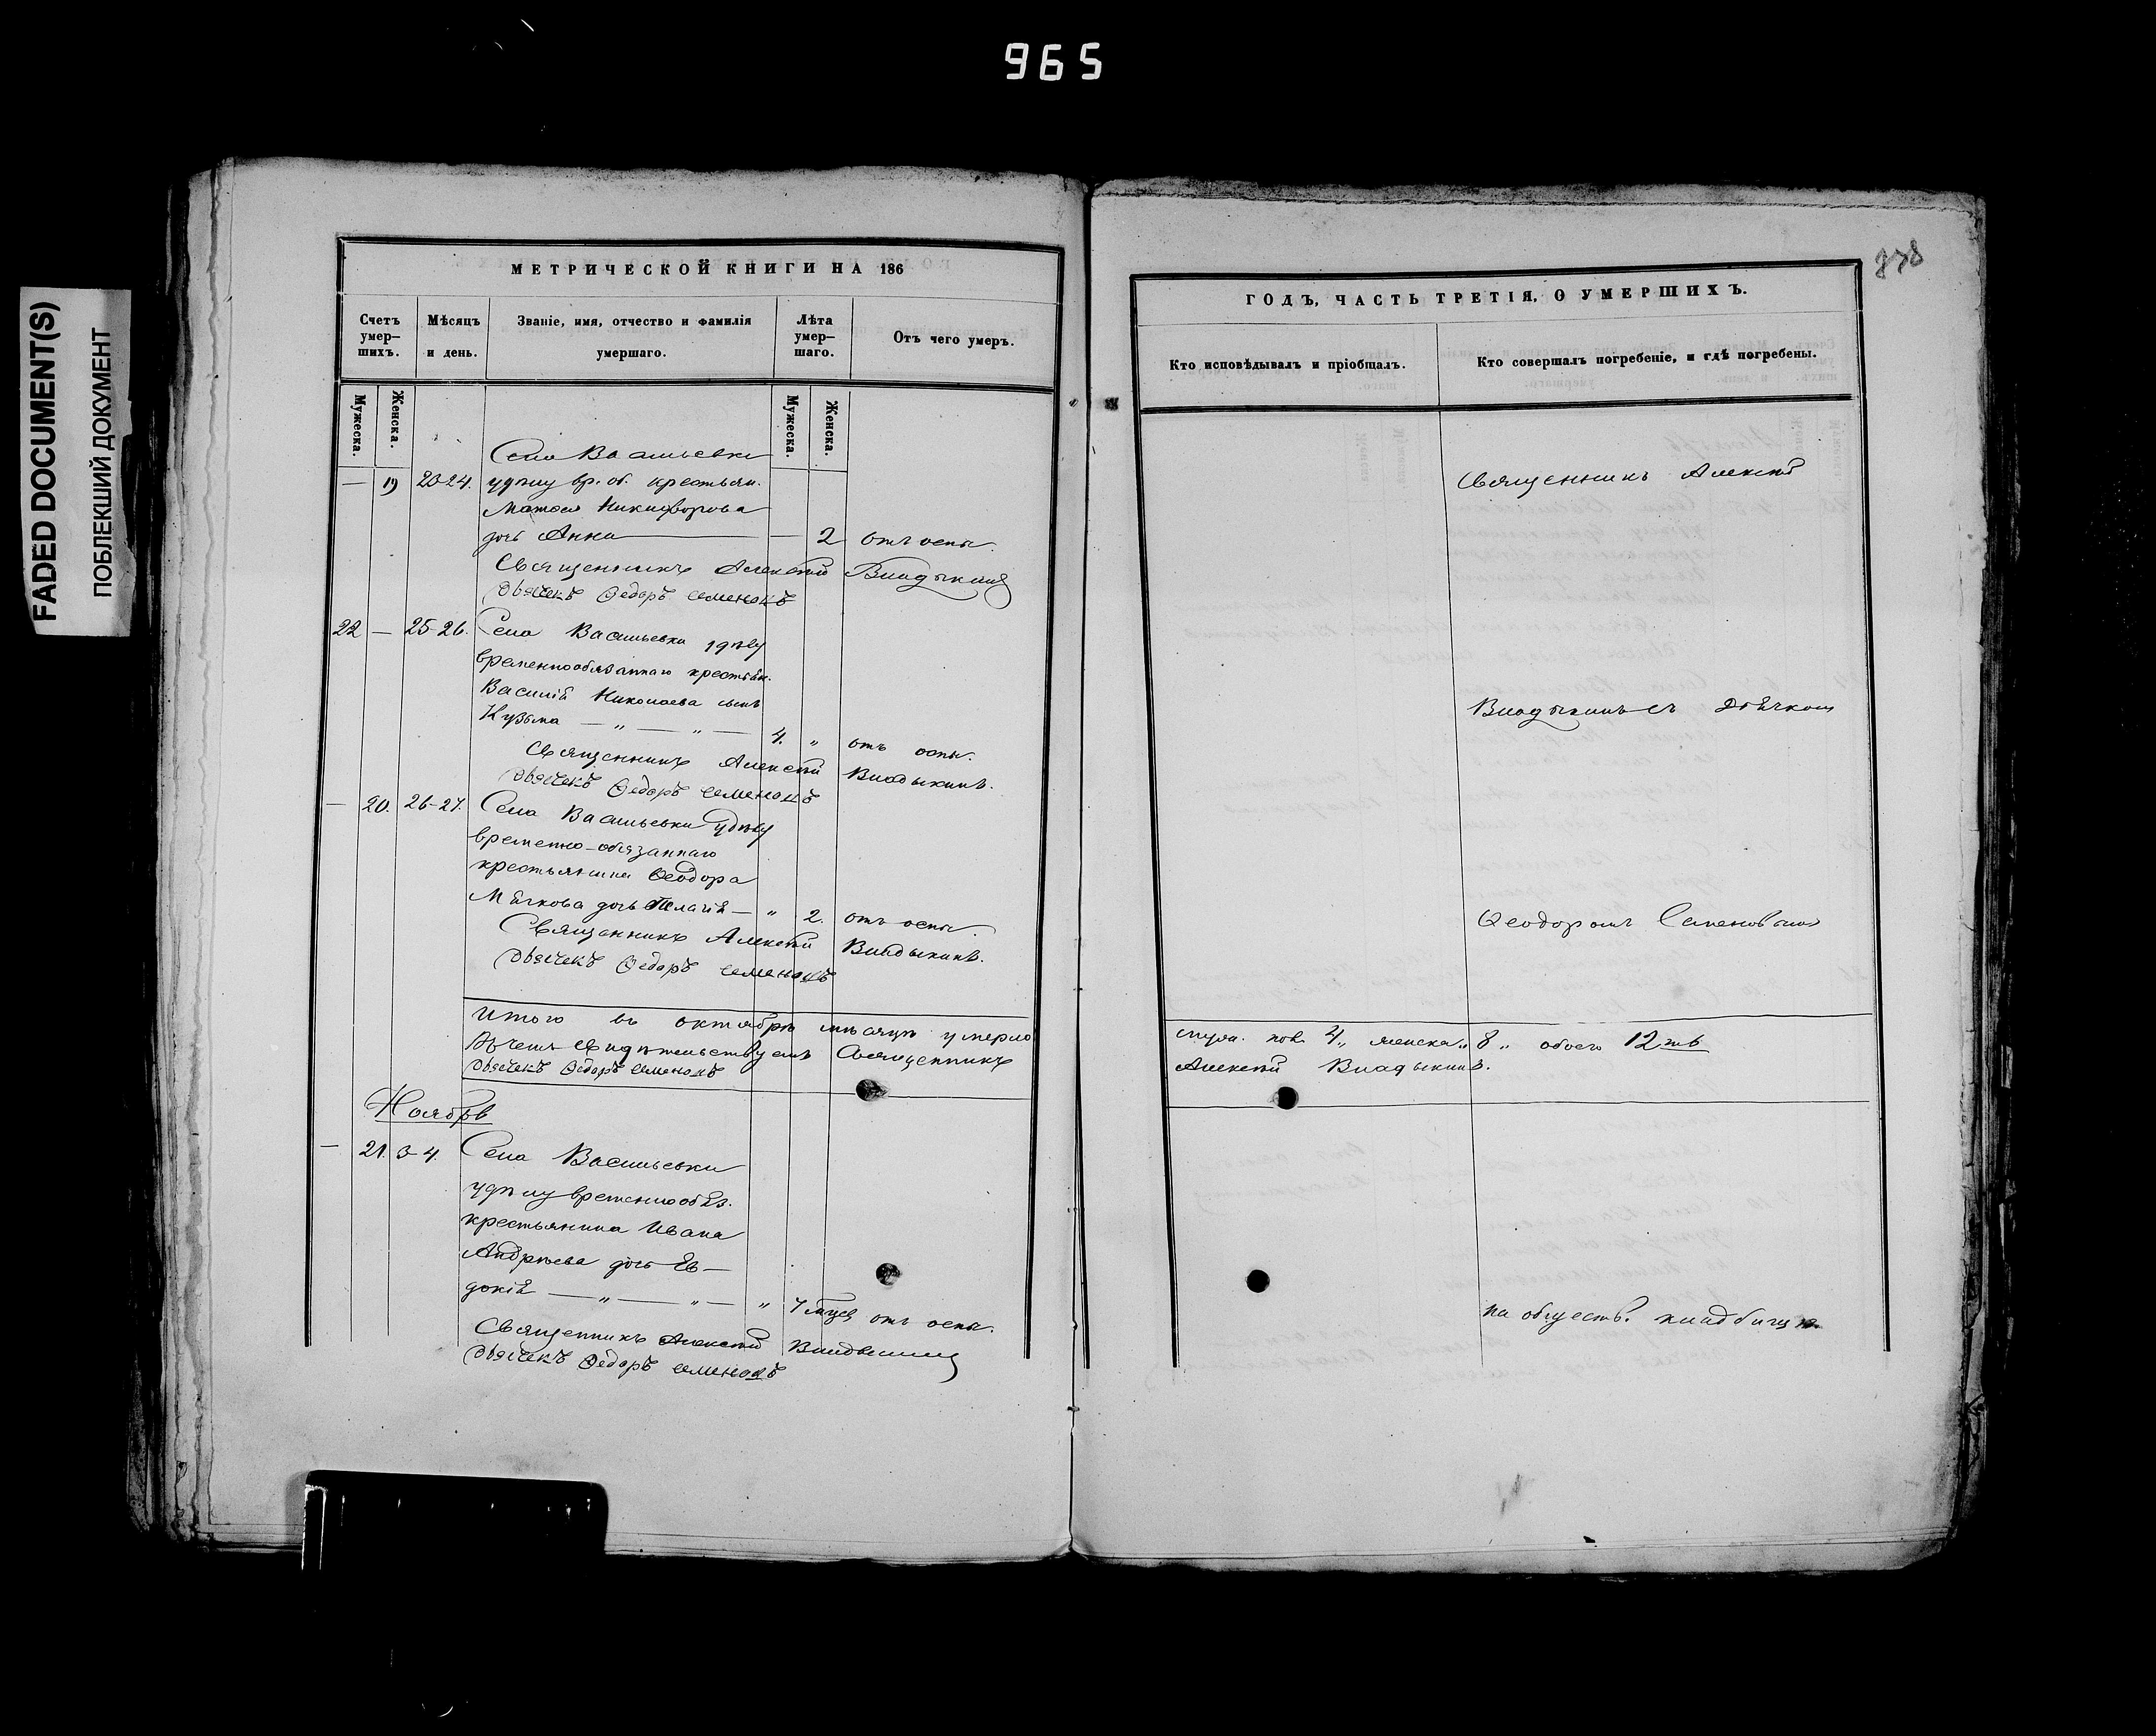 965
FADED DOCUMENT(S)
ПОБЛЕКШИЙ ДОКУМЕНТ
МЕТРИЧЕСКОЙ КНИГИ НА 186
Счетъ умер-шихъ.
Мѣсяцъ и день.
Званіе, имя, отчество и фамилія умершаго.
Лѣта умер-шаго.
Отъ чего умеръ.
Мужеска.
Женска.
Мужеска.
Женска.
Села Васильевки
— 19 23-24. вр. об. крестьян.
Никифорова
дочь Анна — — 2 отъ оспы.
Священникъ Алексѣй Владыкинъ
Дьячекъ Ѳедоръ Семеновъ
22 — 25-26. Села Васильевки
временнообязаннаго крестьян.
Василія Николаева сынъ
Кузьма — „ — „ — 4. „ отъ оспы.
Священникъ Алексѣй Владыкинъ.
Дьячекъ Ѳедоръ Семеновъ
— 20. 26-27. Села Васильевки
временно-обязаннаго
крестьянина Ѳеодора
дочь — „ 2. отъ оспы.
Священникъ Алексѣй Владыкинъ.
Дьячекъ Ѳедоръ Семеновъ
Итого въ октябрѣ мѣсяцѣ умерло
Въ чемъ свидѣтельствуемъ Священникъ
Дьячекъ Ѳедоръ Семеновъ
Ноябрь
— 21. 3-4. Села Васильевки
временнообяз.
крестьянина Ивана
Андрѣева дочь Ев-
докія — „ — „ — „ отъ оспы.
Священникъ Алексѣй Владыкинъ
Дьячекъ Ѳедоръ Семеновъ
838
ГОДЪ, ЧАСТЬ ТРЕТІЯ, О УМЕРШИХЪ.
Кто исповѣдывалъ и пріобщалъ.
Кто совершалъ погребеніе, и гдѣ погребены.
Священникъ Алексѣй
Владыкинъ съ дьячкомъ
Ѳеодоромъ Семеновымъ
муж. пола 4„ женска„ 8„ обоего 12ть
Алексѣй Владыкинъ.
на обществ. кладбищѣ.